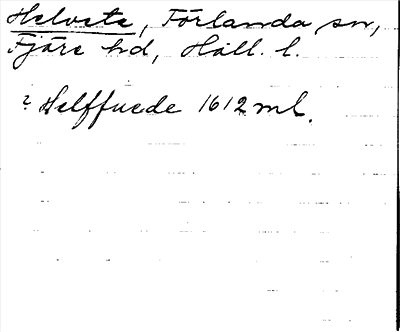 Helvete, Förlanda sn,
Fjäre hd, Hall. l.
? Helffuede 1612 ml.